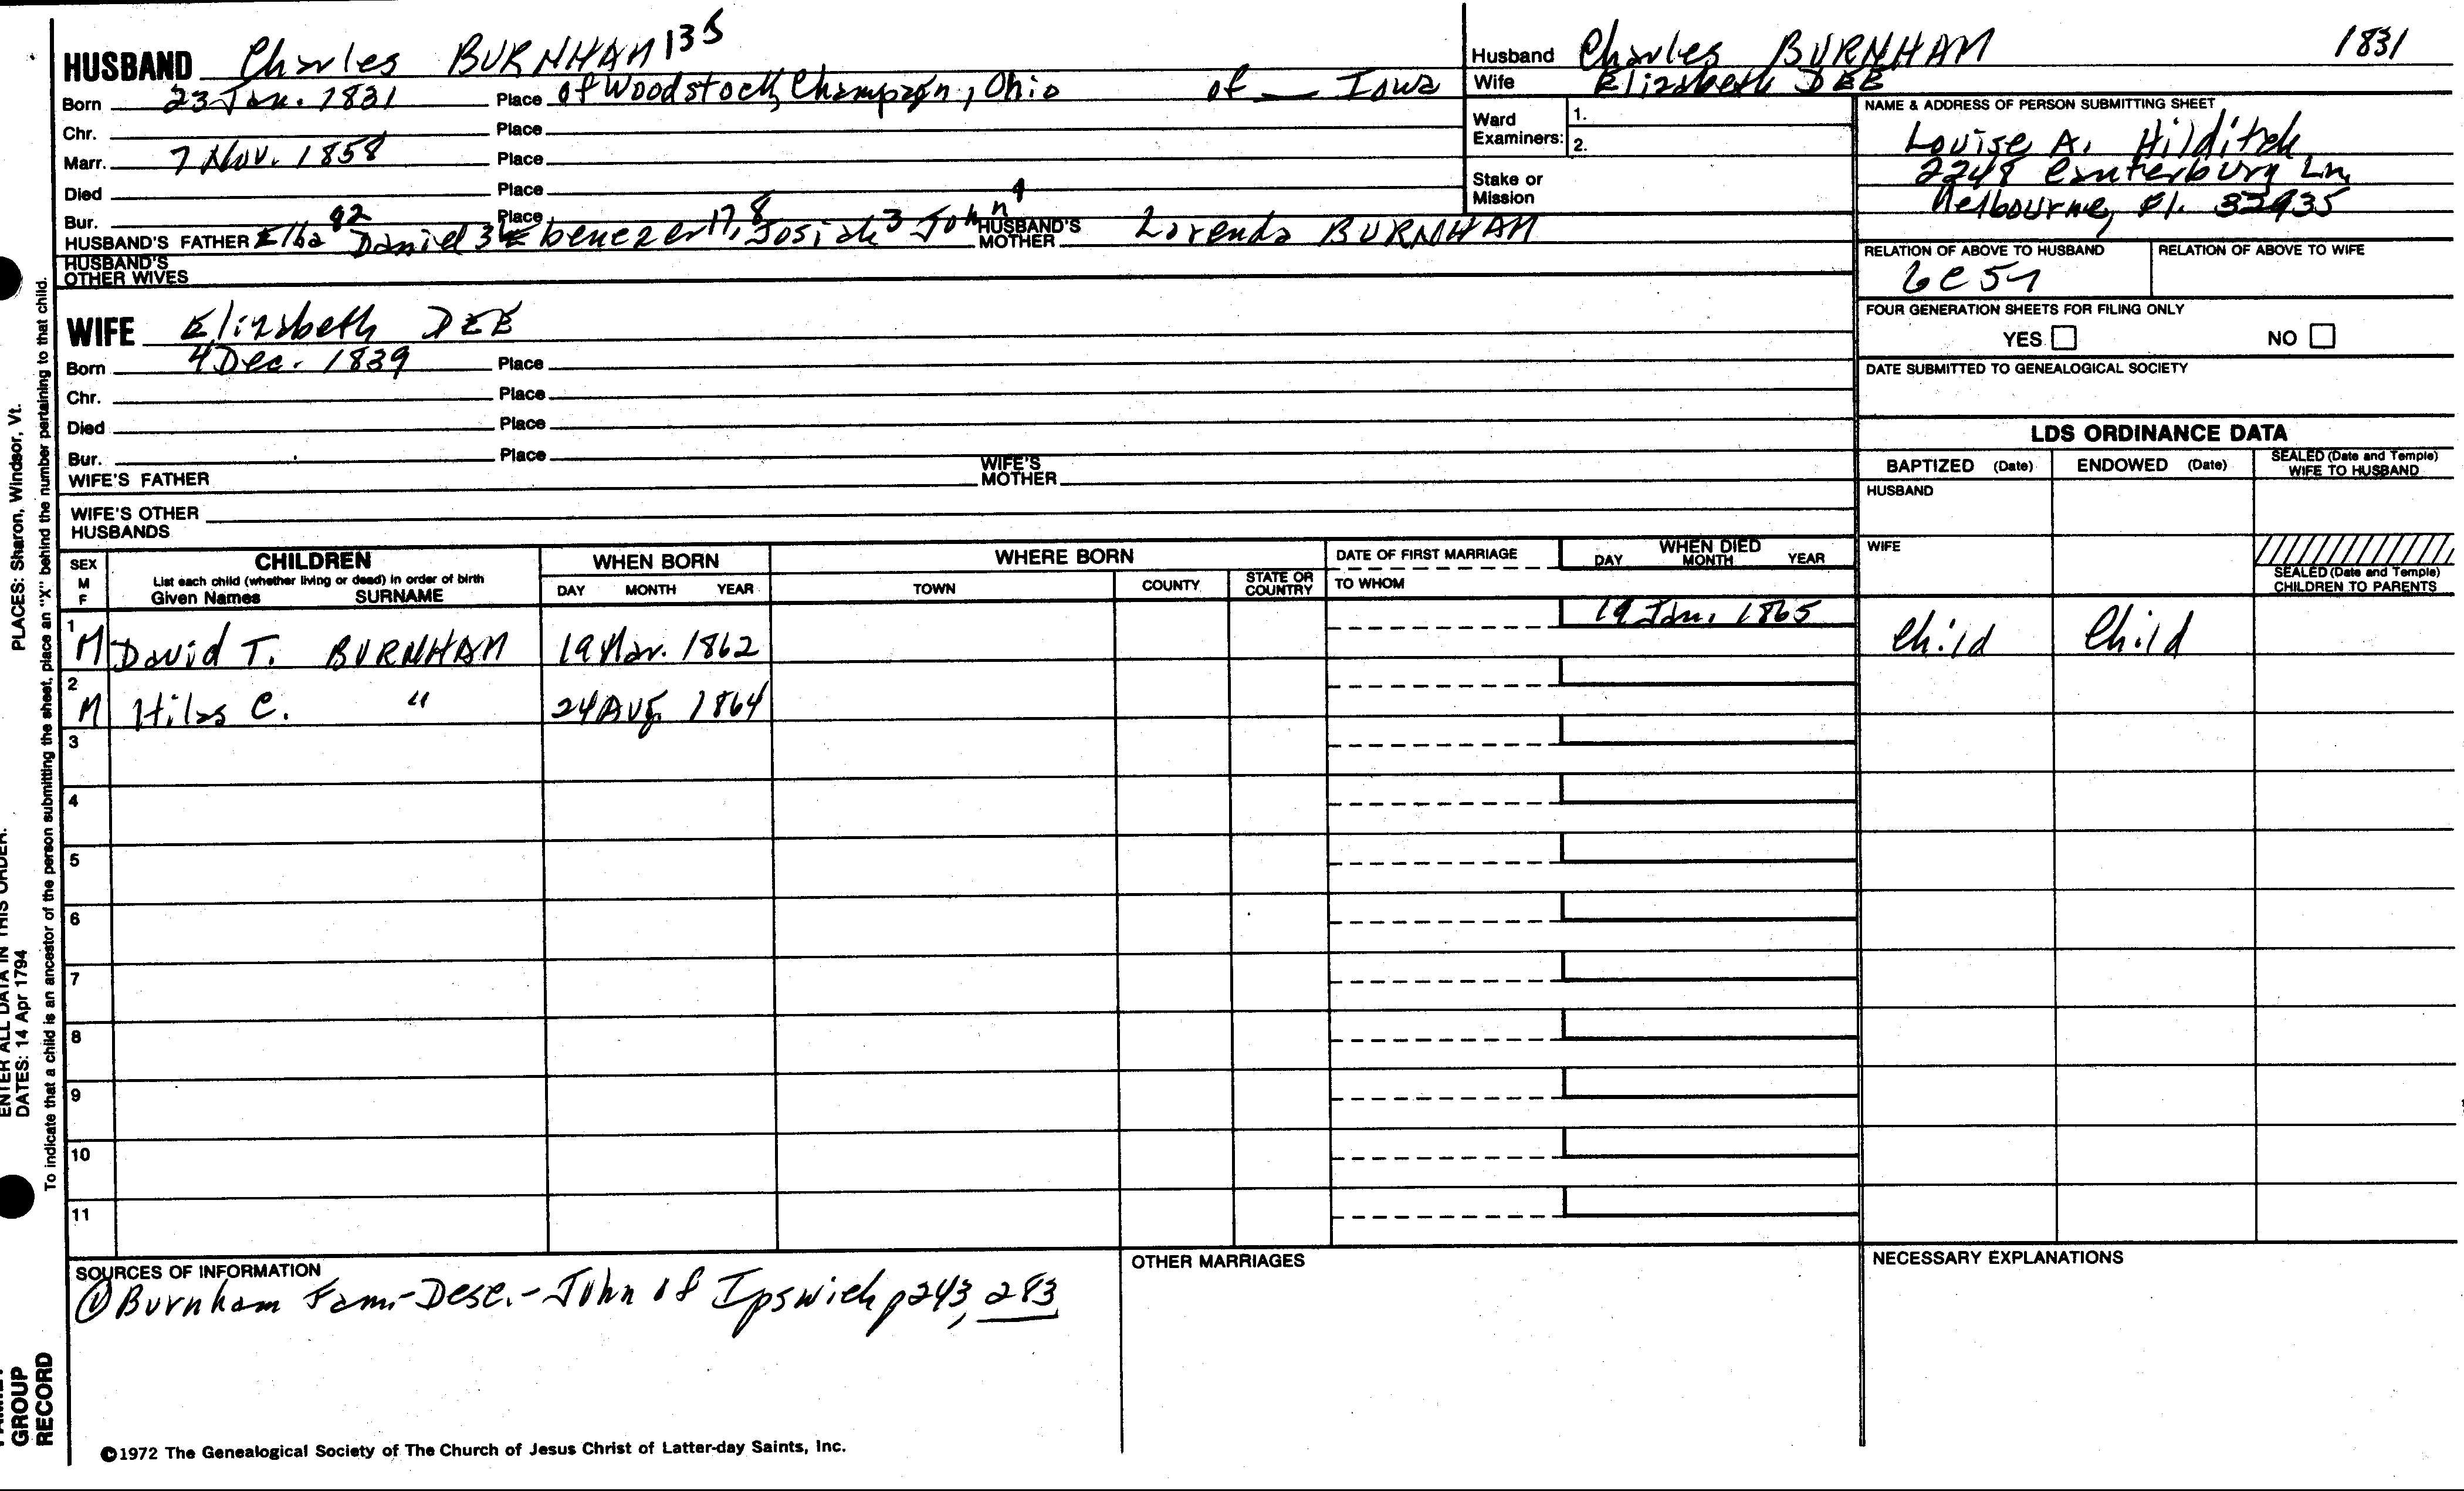 HUSBAND Charles BURNHAM 135
Born 23 Jan. 1831 Place of Woodstock, Champagn, Ohio of — Iowa
Chr. Place
Marr. 7 Nov. 1858 Place
Died Place
Bur. Place
HUSBAND'S FATHER Elba 92 Daniel 34 Ebenezer 17, 8 Josiah 3 John 1 HUSBAND'S MOTHER Lorenda BURNHAM
HUSBAND'S OTHER WIVES
Husband Charles BURNHAM 1831
Wife Elizabeth DEE
Ward Examiners: 1.
2.
Stake or Mission
NAME & ADDRESS OF PERSON SUBMITTING SHEET
Louise A. Hilditch
2248 Canterbury Ln,
Melbourne, Fl. 32935
RELATION OF ABOVE TO HUSBAND RELATION OF ABOVE TO WIFE
6C5
FOUR GENERATION SHEETS FOR FILING ONLY
YES NO
DATE SUBMITTED TO GENEALOGICAL SOCIETY
WIFE Elizabeth DEE
Born 4 Dec. 1839 Place
Chr. Place
Died Place
Bur. Place
WIFE'S FATHER WIFE'S MOTHER
WIFE'S OTHER HUSBANDS
LDS ORDINANCE DATA
BAPTIZED (Date) ENDOWED (Date) SEALED (Date and Temple) WIFE TO HUSBAND
HUSBAND
WIFE
SEALED (Date and Temple) CHILDREN TO PARENTS
SEX M F
CHILDREN
List each child (whether living or dead) in order of birth
Given Names SURNAME
WHEN BORN
DAY MONTH YEAR
WHERE BORN
TOWN COUNTY STATE OR COUNTRY
DATE OF FIRST MARRIAGE
TO WHOM
WHEN DIED
DAY MONTH YEAR
1 M David T. BURNHAM 19 Mar. 1862 19 Jan. 1865 Child Child
2 M Hilas C. " 24 Aug 1864
3
4
5
6
7
8
9
10
11
SOURCES OF INFORMATION
① Burnham Fam.-Desc.-John of Ipswich p243, 283
OTHER MARRIAGES
NECESSARY EXPLANATIONS
©1972 The Genealogical Society of The Church of Jesus Christ of Latter-day Saints, Inc.
PLACES: Sharon, Windsor, Vt.
ENTER ALL DATA IN THIS ORDER:
DATES: 14 Apr 1794
To indicate that a child is an ancestor of the person submitting the sheet, place an "X" behind the number pertaining to that child.
GROUP
RECORD